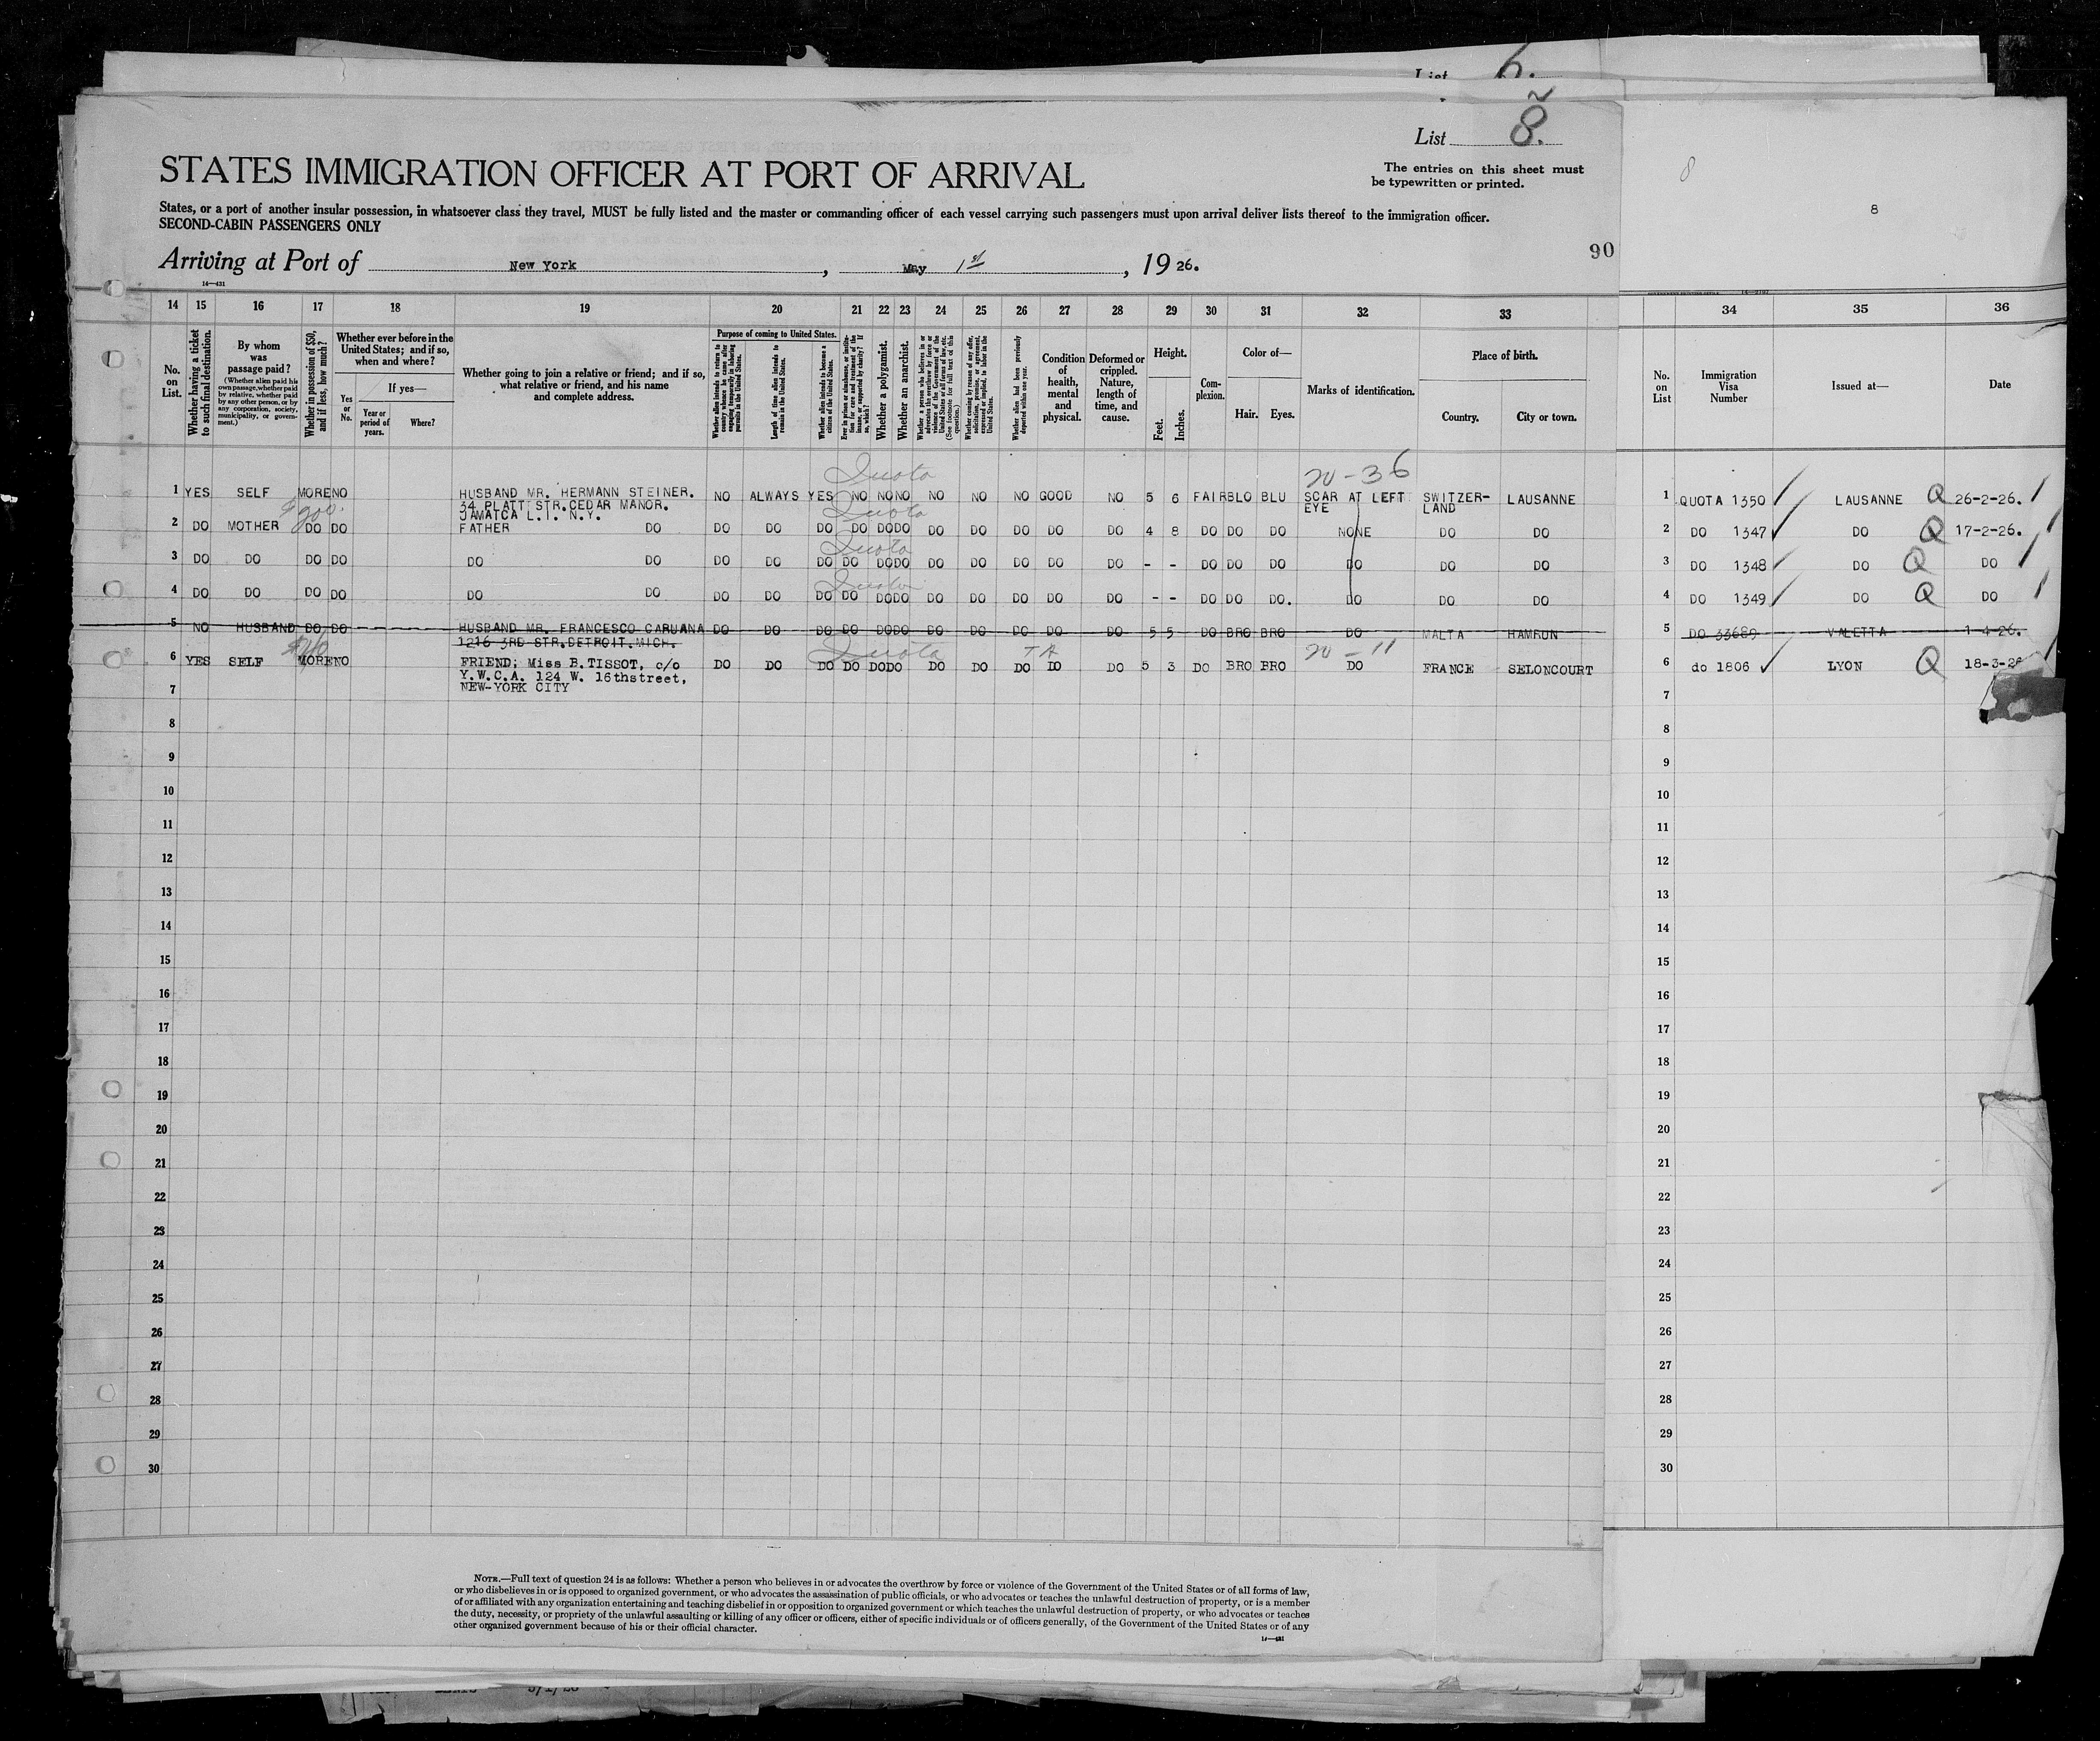 List 6.
List 8.
The entries on this sheet must
be typewritten or printed.
8
8
STATES IMMIGRATION OFFICER AT PORT OF ARRIVAL
States, or a port of another insular possession, in whatsoever class they travel, MUST be fully listed and the master or commanding officer of each vessel carrying such passengers must upon arrival deliver lists thereof to the immigration officer.
SECOND-CABIN PASSENGERS ONLY
90
Arriving at Port of New York, May 1st, 19 26.
14—431
14 15 16 17 18 19 20 21 22 23 24 25 26 27 28 29 30 31 32 33 34 35 36
No. on List.
Whether having a ticket to such final destination.
By whom was passage paid?
(Whether alien paid his own passage, whether paid by relative, whether paid by any other person, or by any corporation, society, municipality, or government.)
Whether in possession of $50, and if less, how much?
Whether ever before in the United States; and if so, when and where?
Yes or No.
If yes—
Year or period of years.
Where?
Whether going to join a relative or friend; and if so, what relative or friend, and his name and complete address.
Purpose of coming to United States.
Whether alien intends to return to country whence he came after engaging temporarily in laboring pursuits in the United States.
Length of time alien intends to remain in the United States.
Whether alien intends to become a citizen of the United States.
Ever in prison or almshouse, or institution for care and treatment of the insane, or supported by charity? If so, which?
Whether a polygamist.
Whether an anarchist.
Whether a person who believes in or advocates the overthrow by force or violence of the Government of the United States or all forms of law, etc. (See footnote for full text of this question.)
Whether coming by reason of any offer, solicitation, promise, or agreement, expressed or implied, to labor in the United States.
Whether alien had been previously deported within one year.
Condition of health, mental and physical.
Deformed or crippled. Nature, length of time, and cause.
Height.
Feet. Inches.
Complexion.
Color of—
Hair. Eyes.
Marks of identification.
Place of birth.
Country. City or town.
No. on List
Immigration Visa Number
Issued at—
Date
Quota 20-36
1 YES SELF MORE NO HUSBAND MR. HERMANN STEINER. NO ALWAYS YES NO NO NO NO NO NO GOOD NO 5 6 FAIR BLO BLU SCAR AT LEFT SWITZER- LAUSANNE 1 QUOTA 1350 LAUSANNE Q 26-2-26.
34 PLATT STR.CEDAR MANOR. EYE LAND
$200. JAMAICA L.I. N.Y. Quota
2 DO MOTHER DO DO FATHER DO DO DO DO DO DO DO DO DO DO DO DO 4 8 DO DO DO NONE DO DO 2 DO 1347 DO Q 17-2-26.
Quota
3 DO DO DO DO DO DO DO DO DO DO DO DO DO DO DO DO DO - - DO DO DO DO DO DO 3 DO 1348 DO Q DO
Quota
4 DO DO DO DO DO DO DO DO DO DO DO DO DO DO DO DO DO - - DO DO DO. DO DO DO 4 DO 1349 DO Q DO
5 NO HUSBAND DO DO HUSBAND MR. FRANCESCO CARUANA DO DO DO DO DO DO DO DO DO DO DO 5 5 DO BRO BRO DO MALTA HAMRUN 5 DO 33689 VALETTA 1-4-26.
1216 3RD STR.DETROIT.MICH.
Quota TA 20-11
6 YES SELF MORE NO FRIEND; Miss B.TISSOT, c/o DO DO DO DO DO DO DO DO DO DO DO 5 3 DO BRO BRO DO FRANCE SELONCOURT 6 do 1806 LYON Q 18-3-26
Y.W.C.A. 124 W. 16thstreet,
NEW-YORK CITY
7 7
8 8
9 9
10 10
11 11
12 12
13 13
14 14
15 15
16 16
17 17
18 18
19 19
20 20
21 21
22 22
23 23
24 24
25 25
26 26
27 27
28 28
29 29
30 30
NOTE.—Full text of question 24 is as follows: Whether a person who believes in or advocates the overthrow by force or violence of the Government of the United States or of all forms of law,
or who disbelieves in or is opposed to organized government, or who advocates the assassination of public officials, or who advocates or teaches the unlawful destruction of property, or is a member
of or affiliated with any organization entertaining and teaching disbelief in or opposition to organized government or which teaches the unlawful destruction of property, or who advocates or teaches
the duty, necessity, or propriety of the unlawful assaulting or killing of any officer or officers, either of specific individuals or of officers generally, of the Government of the United States or of any
other organized government because of his or their official character.
14—431